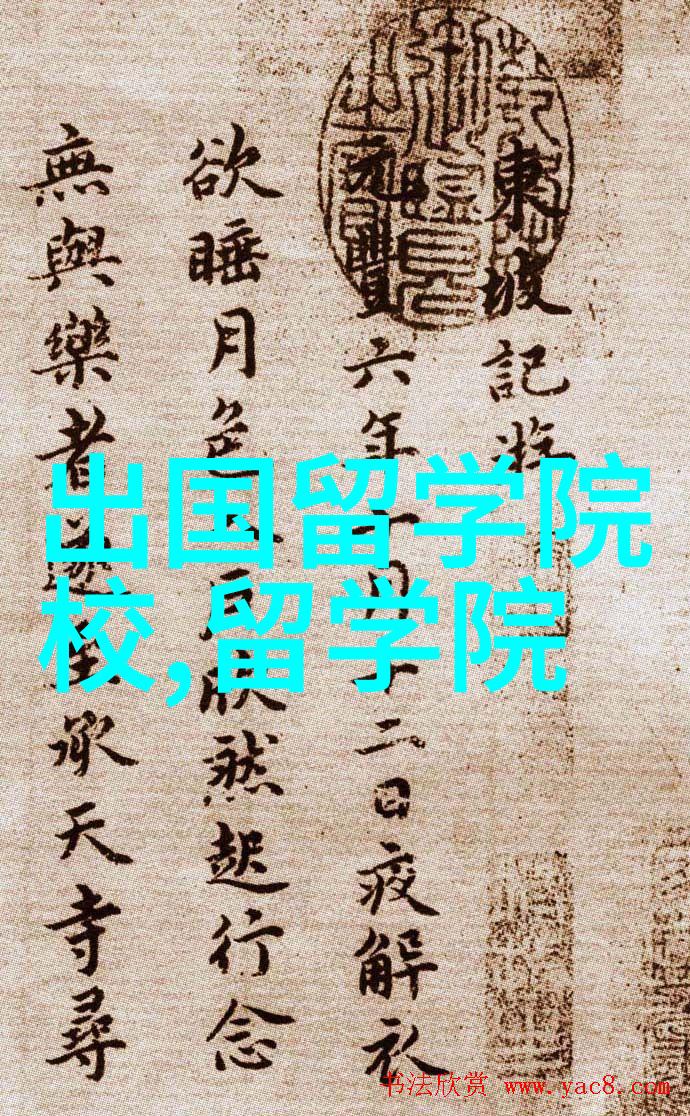 東坡記遊
元豐六年十月十二日夜解衣
欲睡月色入戶欣然起行念
無與樂者遂至承天寺尋
出国留学院
校,留学院
书法欣赏 www.yac8.com